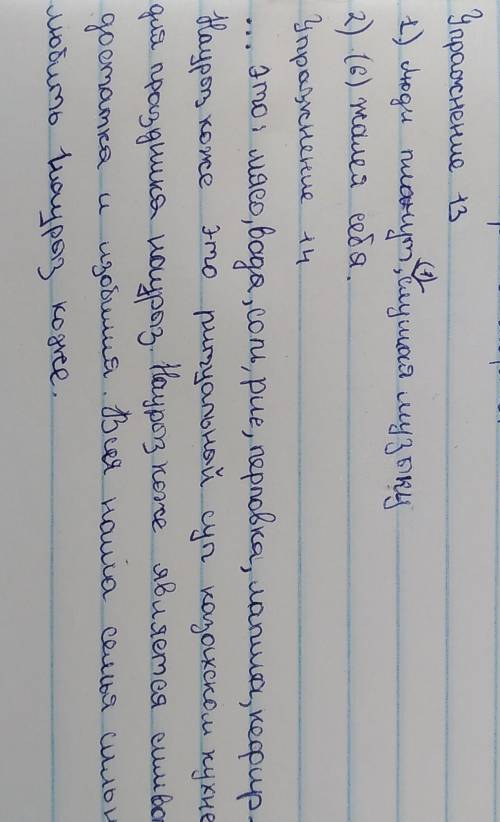 Упражнение 13
1) люди плачут, (1) слушая музыку
2) (6) жалея себя.
Упражнение 14
... это: мясо, вода, соль, рис, перловка, лапша, кефир.
Науроз коже это ритуальный суп казахском кухне
для праздника науроз. Науроз коже является симво
достатка и изобилия. Вся наша семья сильн
любить Науроз коже.